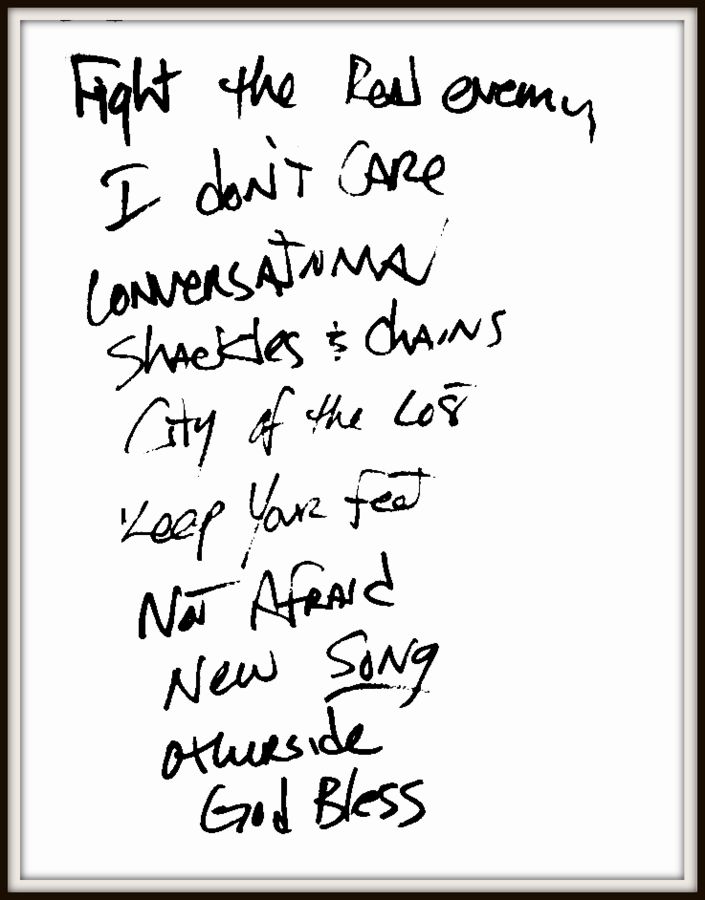 Fight the Real enemy
I don't CARE
CONVERSATIONAL
Shackles & chains
City of the Lost
Keep Your feet
Not Afraid
New Song
otherside
God Bless